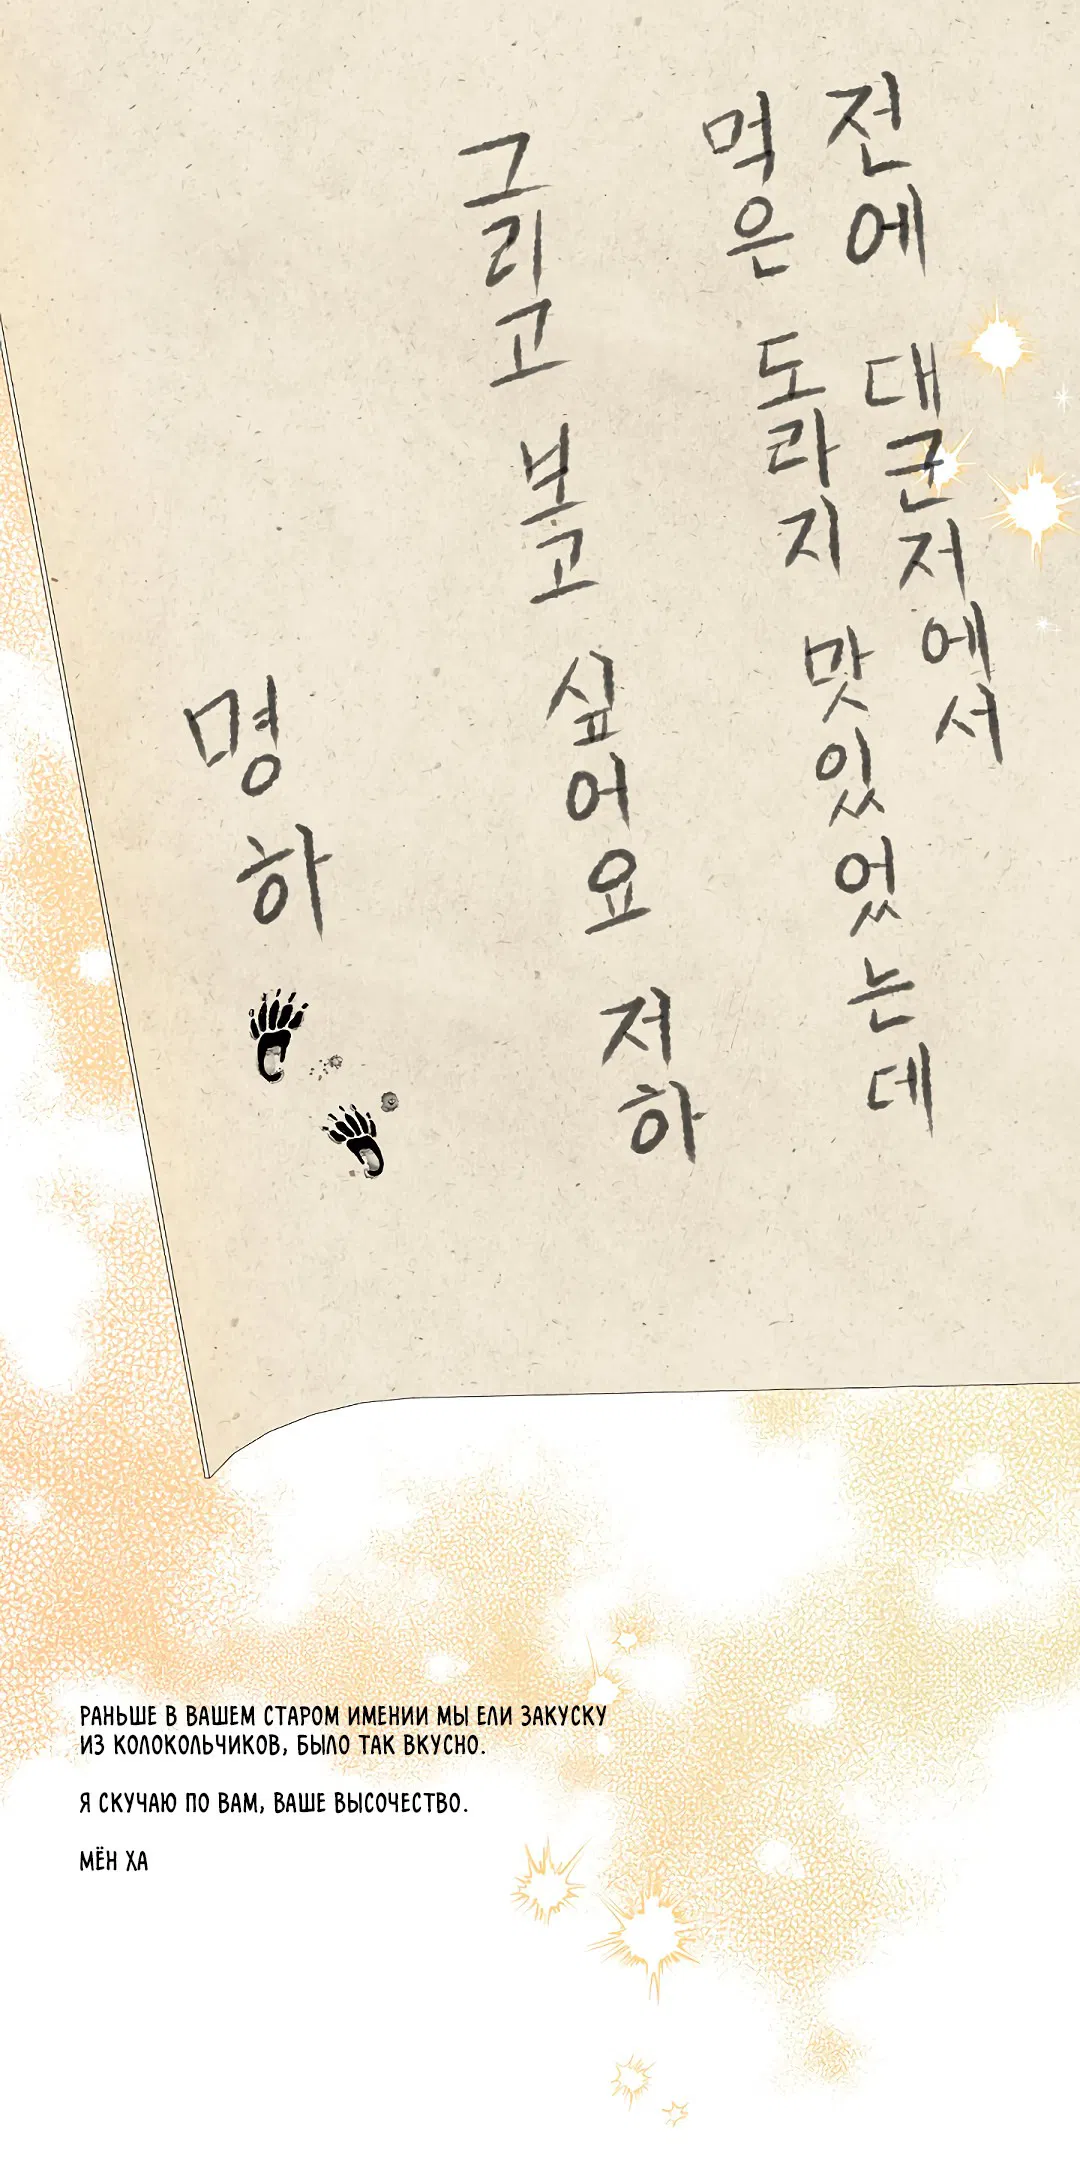 전에 대군저에서
먹은 도라지 맛있었는데
그리고 보고 싶어요 저하
명하
РАНЬШЕ В ВАШЕМ СТАРОМ ИМЕНИИ МЫ ЕЛИ ЗАКУСКУ
ИЗ КОЛОКОЛЬЧИКОВ, БЫЛО ТАК ВКУСНО.
Я СКУЧАЮ ПО ВАМ, ВАШЕ ВЫСОЧЕСТВО.
МЁН ХА